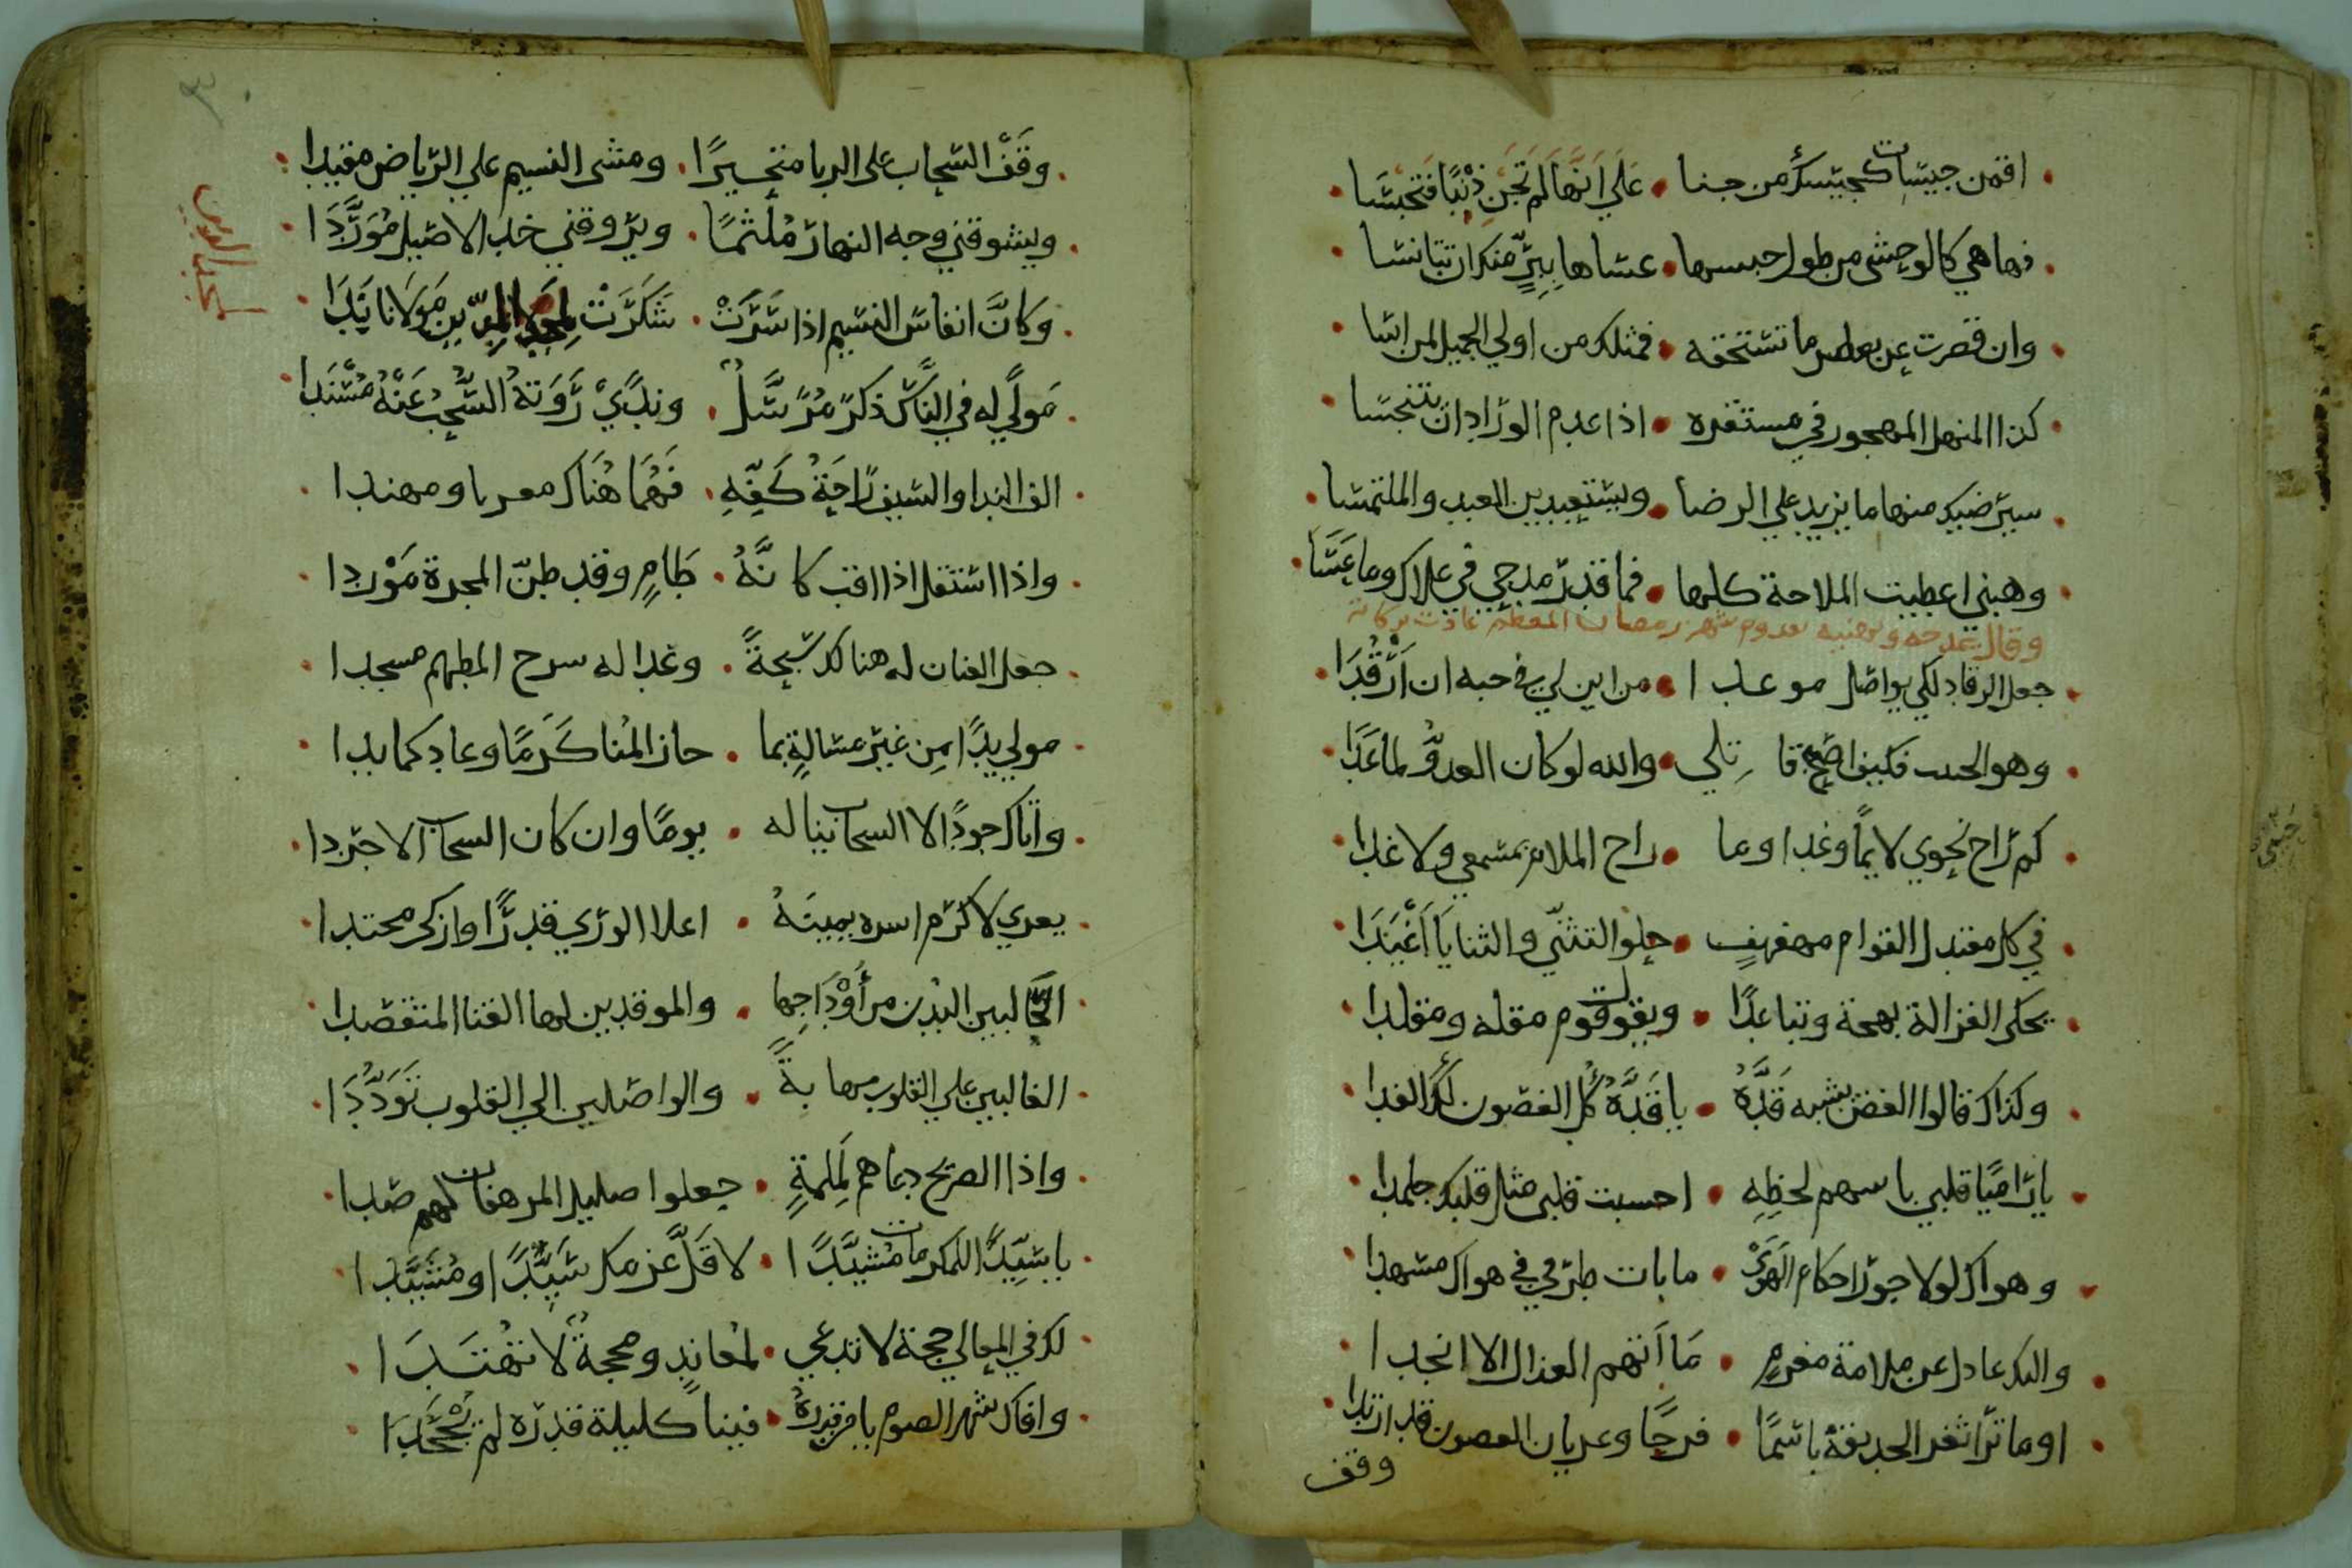 اقمن جبيسات كجيسك من جنا • على انها لم تجن ذنبا فتحبسا
فها هي كالوحشي من طول حبسها • عساها ببر منك ان تتانسا
وان قصرت عن بعض ما تستحقه • فمثلك من اولي الجميل لمن اسا
كذا المنهل المهجور في مستقره • اذا عدم الوراد ان يتنجسا
سيرضيك منها ما يزيد على الرضا • ويستعبد بين العبد والملتمسا
وهبني اعطيت الملاحة كلها • فما قدر مدحي في علاك وما عسا
وقال يمدحه ويهنيه بقدوم شهر رمضان المعظم عادت بركاته
جعل الرقاد لكي يواصل موعدا • من اين لي في حبه ان ارقدا
وهو الحبيب فكيف اصبح قاتلي • والله لو كان العدو لما عدا
كم راح نحوي لايما وغدا وما • راح الملام بمسمعي ولا غدا
في كل معتدل القوام مهفهف • حلو التثني والثنايا اغيدا
يحكي الغزالة بهجة وتباعدا • ويقول قوم مقلة ومقلدا
وكذاك قالوا الغصن يشبه قده • يا قده كل الغصون لك الفدا
يا راميا قلبي باسهم لحظه • احسبت قلبي مثل قلبك جلمدا
وهواك لولا جور احكام الهوى • ما بات طرفي في هواك مسهدا
واليك عاذل عن ملامة مغرم • ما اتهم العذال الا انجدا
اوما ترا ثغر الحديقة باسما • فرحا وعريان الغصون قد ارتدا
وقف
٣
وقف السحاب على الربا متحيرا • ومشى النسيم على الرياض مقيدا
ويشوقني وجه النهار ملثما • ويروقني خد الاصيل موردا
وكان انفاس النسيم اذا سرت • شكرت لمجد الدين مولانا يدا
لمجد الدين
مولى له في الناس ذكر مرسل • وندي روته السحب عنه مسندا
الف الندا والسيف راحة كفه • فهما هناك معربا ومهندا
واذا استقل اذا اقب كانه • طام وقد ظن المجرة موردا
جعل العنان له هنالك سبحة • وغدا له سرح المطهم مسجدا
مولى بدا من غير مسالة بما • حاز المنا كرما وعاد كما بدا
واناك جودا لا السحاب يناله • يوما وان كان السحاب الاجردا
يعزي لاكرم اسره يمينه • اعلا الوري قدرا وازكى محتدا
الحالبين البدن من اوداجها • والموقدين لها القنا المتقصدا
الغالبين على القلوب مهابة • والواصلين الي القلوب توددا
واذا الصريخ دعاهم لملمة • جعلوا صليل المرهفات لهم صدا
يا سيدا للمكرمات مشيدا • لا قل عزمك سيدا ومشيدا
لك في المعالي حجة لا تدعي • لمعاند ومحجة لا تهتدا
وافاك شهر الصوم يا من قدره • فينا كليلة قدره لم تجحدا